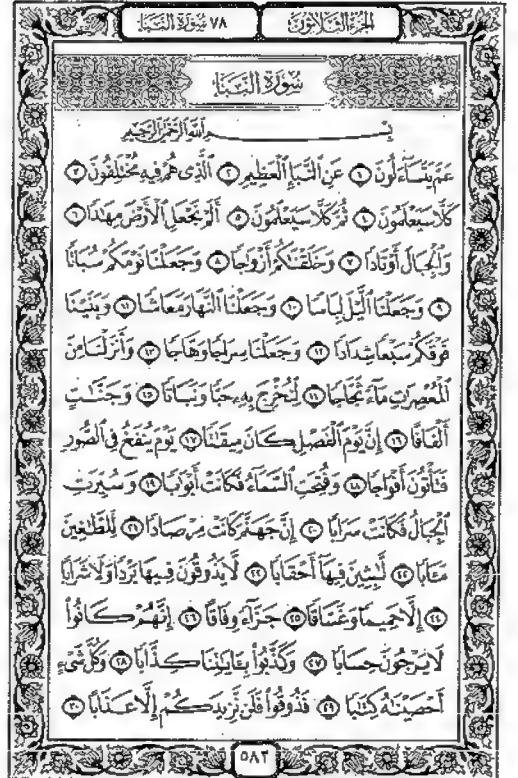 الجزء الثلاثون
٧٨ سورة النبإ
سورة النبإ
بِسْمِ ٱللَّهِ ٱلرَّحْمَٰنِ ٱلرَّحِيمِ
عَمَّ يَتَسَآءَلُونَ ١ عَنِ ٱلنَّبَإِ ٱلْعَظِيمِ ٢ ٱلَّذِى هُمْ فِيهِ مُخْتَلِفُونَ ٣
كَلَّا سَيَعْلَمُونَ ٤ ثُمَّ كَلَّا سَيَعْلَمُونَ ٥ أَلَمْ نَجْعَلِ ٱلْأَرْضَ مِهَٰدًا ٦
وَٱلْجِبَالَ أَوْتَادًا ٧ وَخَلَقْنَٰكُمْ أَزْوَٰجًا ٨ وَجَعَلْنَا نَوْمَكُمْ سُبَاتًا
٩ وَجَعَلْنَا ٱلَّيْلَ لِبَاسًا ١٠ وَجَعَلْنَا ٱلنَّهَارَ مَعَاشًا ١١ وَبَنَيْنَا
فَوْقَكُمْ سَبْعًا شِدَادًا ١٢ وَجَعَلْنَا سِرَاجًا وَهَّاجًا ١٣ وَأَنزَلْنَا مِنَ
ٱلْمُعْصِرَٰتِ مَآءً ثَجَّاجًا ١٤ لِّنُخْرِجَ بِهِۦ حَبًّا وَنَبَاتًا ١٥ وَجَنَّٰتٍ
أَلْفَافًا ١٦ إِنَّ يَوْمَ ٱلْفَصْلِ كَانَ مِيقَٰتًا ١٧ يَوْمَ يُنفَخُ فِى ٱلصُّورِ
فَتَأْتُونَ أَفْوَاجًا ١٨ وَفُتِحَتِ ٱلسَّمَآءُ فَكَانَتْ أَبْوَٰبًا ١٩ وَسُيِّرَتِ
ٱلْجِبَالُ فَكَانَتْ سَرَابًا ٢٠ إِنَّ جَهَنَّمَ كَانَتْ مِرْصَادًا ٢١ لِّلطَّٰغِينَ
مَـَٔابًا ٢٢ لَّٰبِثِينَ فِيهَآ أَحْقَابًا ٢٣ لَّا يَذُوقُونَ فِيهَا بَرْدًا وَلَا شَرَابًا
٢٤ إِلَّا حَمِيمًا وَغَسَّاقًا ٢٥ جَزَآءً وِفَاقًا ٢٦ إِنَّهُمْ كَانُوا۟
لَا يَرْجُونَ حِسَابًا ٢٧ وَكَذَّبُوا۟ بِـَٔايَٰتِنَا كِذَّابًا ٢٨ وَكُلَّ شَىْءٍ
أَحْصَيْنَٰهُ كِتَٰبًا ٢٩ فَذُوقُوا۟ فَلَن نَّزِيدَكُمْ إِلَّا عَذَابًا ٣٠
٥٨٢